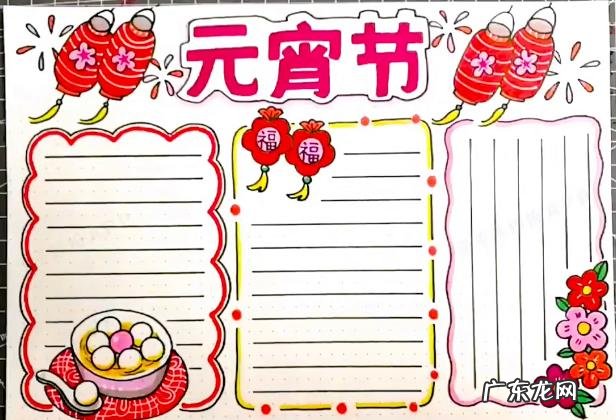 元宵节
福
福
广东龙网